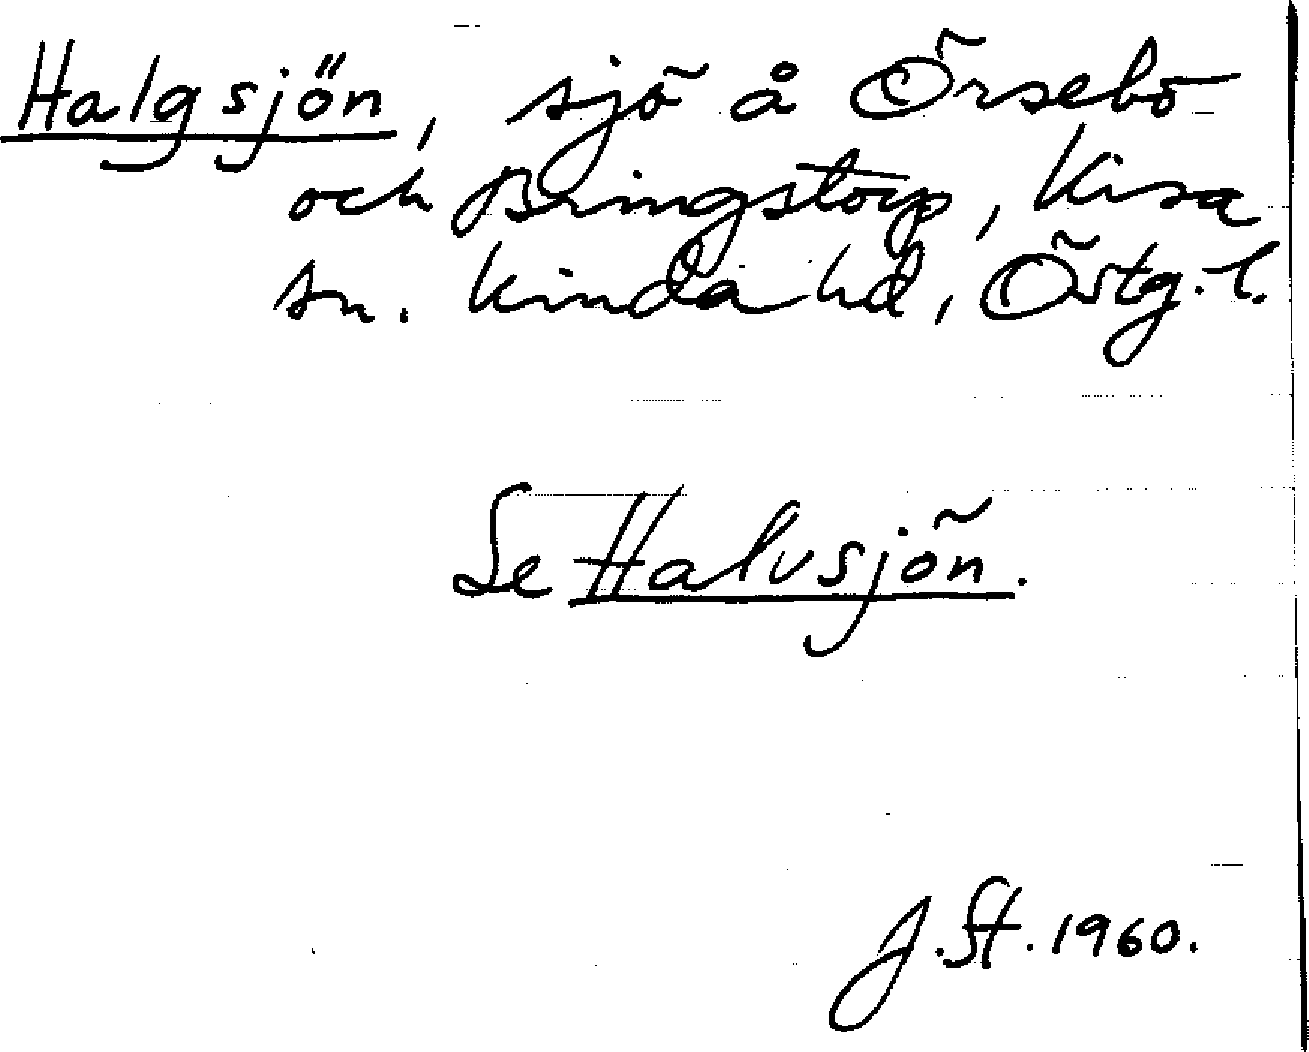 Halgsjön, sjö å Örsebo
och Bringstorp, Kisa
sn. Kinda hd, Östg.-l.
Se Halvsjön.
J. St. 1960.